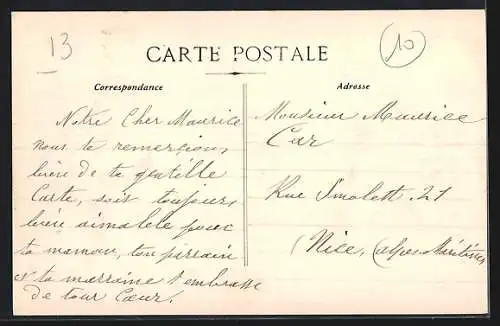 13
10
CARTE POSTALE
Correspondance
Adresse
Notre Cher Maurice
nous te remerçion,
bien de ta gentille
Carte, sois toujours
bien aimable pour
ta maman, ton parrain
et ta marraine t'embrasse
de tout Cœur.
Monsieur Maurice
Rue Smolett. 21
(Nice, (alpes Maritimes